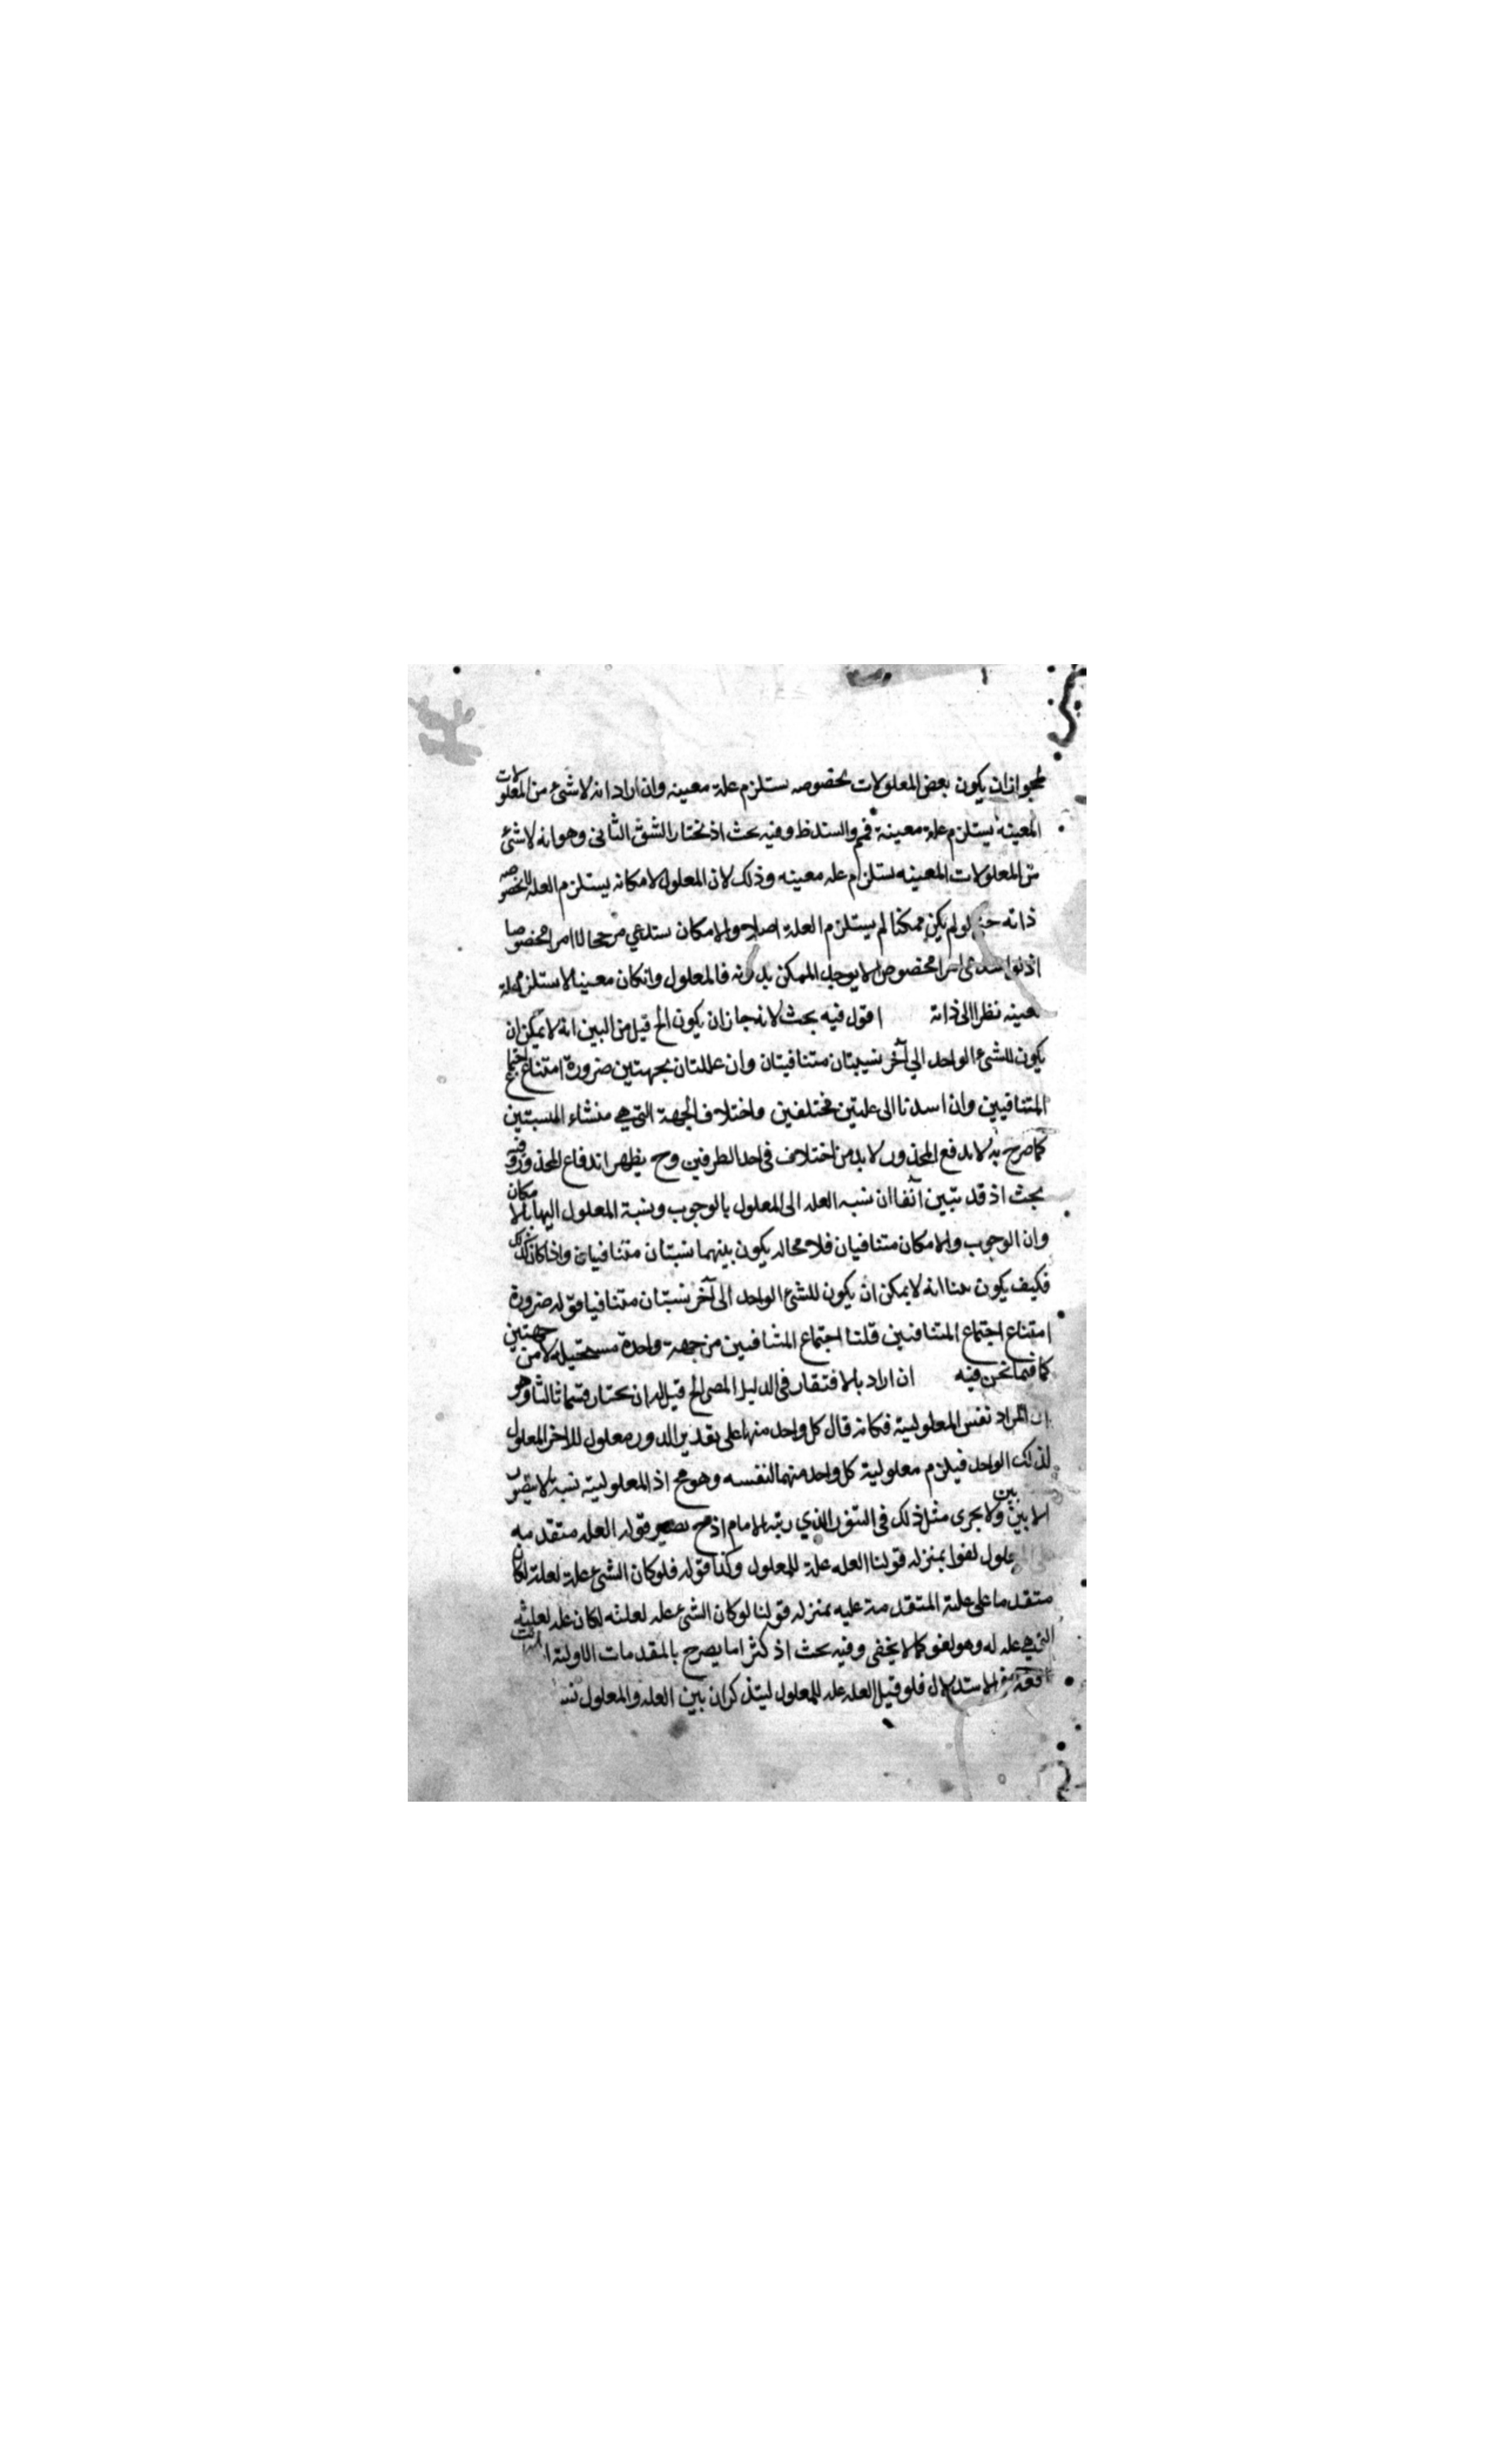 لجواز ان يكون بعض المعلولات بخصوصه يستلزم علة معينه وان اراد انه لا شئ من المعلولات
المعينه يستلزم علة معينة فمم والسند ظ وفيه بحث اذ نختار الشق الثانى وهو انه لا شئ
من المعلولات المعينه يستلزم عله معينه وذلك لان المعلول لامكانه يستلزم العله لا لخصوصه
ذاته حتى لو لم يكن ممكنا لم يستلزم العلة اصلا والامكان يستدعي مرجحا لا امرا مخصوصا
اذ لو استدعى امرا مخصوصا لا يوجد الممكن بدونه فالمعلول وانكان معينا لا يستلزم علة
معينه نظرا الى ذاته اقول فيه بحث لانه جاز ان يكون الخ قيل من البين انه لا يمكن ان
يكون للشئ الواحد الي آخر نسبتان متنافيتان وان عللتان بجهتين ضرورة امتناع اجتماع
المتنافيين وان اسندنا الى علتين مختلفين واختلاف الجهة التي هي منشاء النسبتين
كما صرح به لا يدفع المحذور لا بد من اختلاف فى احد الطرفين وح يظهر اندفاع المحذور وفيه
بحث اذ قد تبين آنفا ان نسبه العله الى المعلول بالوجوب ونسبة المعلول اليها بالامكان
وان الوجوب والامكان متنافيان فلا محاله يكون بينهما نسبتان متنافيان واذا كان كذلك
فكيف يكون بينا انه لا يمكن ان يكون للشئ الواحد الى آخر نسبتان متنافيا قوله ضرورة
امتناع اجتماع المتنافيين قلنا اجتماع المتنافيين من جهة واحدة مستحيله لا من جهتين
كما فيما نحن فيه ان اراد بالافتقار فى الدليل المص الخ قيل له ان يختار قسما ثالثا وهو
ان المراد نفس المعلولية فكانه قال كل واحد منهما على تقدير الدور معلول للاخر المعلول
لذلك الواحد فيلزم معلولية كل واحد منهما لنفسه وهو مح اذ المعلولية نسبة لا يتصور
الا بين بين ولا يجرى مثل ذلك فى الشق الذي رتبه الامام اذ ح يصير قوله العله متقدمه
على المعلول لغوا بمنزله قولنا العله علة للمعلول وكذا قوله فلو كان الشئ علة لعلته لكان
متقدما على علته المتقدمة عليه بمنزله قولنا لو كان الشئ عله لعلته لكان عله لعلته
التي هي عله له وهو لغو كما لا يخفى وفيه بحث اذ كثرا ما يصرح بالمقدمات الاولية
فى الاستدلال فلو قيل العله عله للمعلول ليتذكر ان بين العله والمعلول